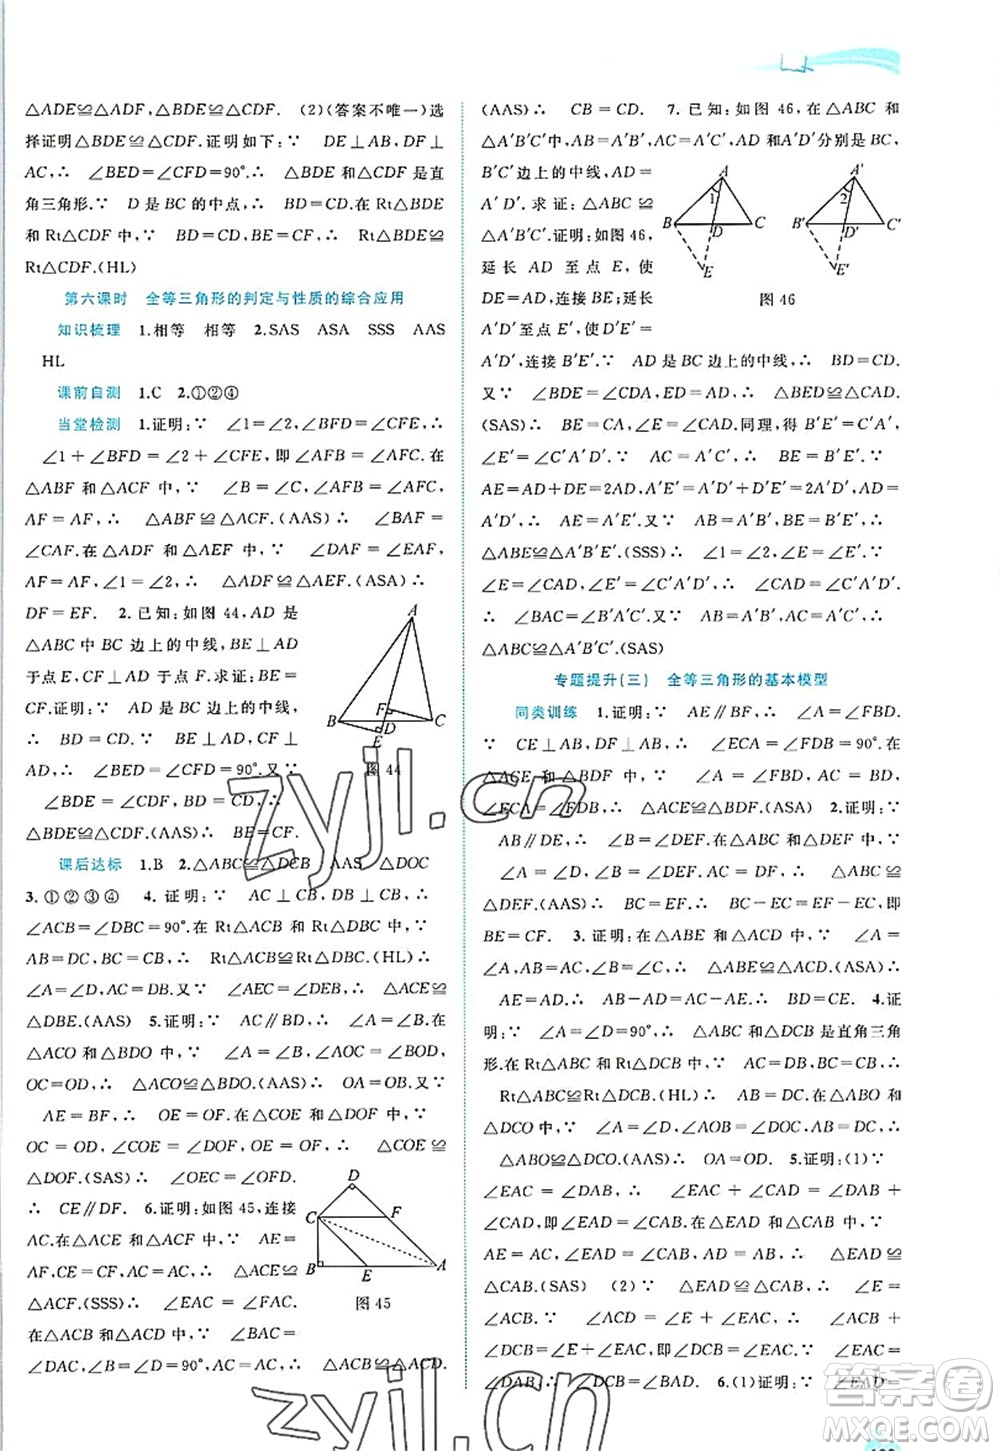 △ADE≌△ADF,△BDE≌△CDF. (2)(答案不唯一)选
择证明△BDE≌△CDF.证明如下:∵ DE⊥AB,DF⊥
AC,∴ ∠BED=∠CFD=90°.∴ △BDE和△CDF是直
角三角形.∵ D是BC的中点,∴ BD=CD.在Rt△BDE
和Rt△CDF中,∵ BD=CD,BE=CF,∴ Rt△BDE≌
Rt△CDF.(HL)
第六课时 全等三角形的判定与性质的综合应用
知识梳理 1.相等 相等 2.SAS ASA SSS AAS
HL
课前自测 1.C 2.①②④
当堂检测 1.证明:∵ ∠1=∠2,∠BFD=∠CFE,∴
∠1+∠BFD=∠2+∠CFE,即∠AFB=∠AFC.在
△ABF和△ACF中,∵ ∠B=∠C,∠AFB=∠AFC,
AF=AF,∴ △ABF≌△ACF.(AAS)∴ ∠BAF=
∠CAF.在△ADF和△AEF中,∵ ∠DAF=∠EAF,
AF=AF,∠1=∠2,∴ △ADF≌△AEF.(ASA)∴
DF=EF. 2.已知:如图44,AD是
△ABC中BC边上的中线,BE⊥AD
于点E,CF⊥AD于点F.求证:BE=
CF.证明:∵ AD是△ABC的中线,
∴ BD=CD.∵ BE⊥AD,CF⊥
AD,∴ ∠BED=∠CFD=90°.又∵
∠BDE=∠CDF,BD=CD,∴
△BDE≌△CDF.(AAS)∴ BE=CF.
A
B
F
C
D
E
图44
课后达标 1.B 2.△ABC≌△DCB AAS △DOC
3.①②③④ 4.证明:∵ AC⊥CB,DB⊥CB,∴
∠ACB=∠DBC=90°.在Rt△ACB和Rt△DBC中,∵
AB=DC,BC=CB,∴ Rt△ACB≌Rt△DBC.(HL)∴
∠A=∠D,AC=DB.又∵ ∠AEC=∠DEB,∴ △ACE≌
△DBE.(AAS) 5.证明:∵ AC∥DB,∴ ∠A=∠B.在
△ACO和△BDO中,∵ ∠A=∠B,∠AOC=∠BOD,
OC=OD,∴ △ACO≌△BDO.(AAS)∴ OA=OB.又∵
AE=BF,∴ OE=OF.在△COE和△DOF中,∵
OC=OD,∠COE=∠DOF,OE=OF,∴ △COE≌
△DOF.(SAS)∴ ∠OEC=∠OFD.
∴ CE∥DF. 6.证明:如图45,连接
AC.在△ACE和△ACF中,∵ AE=
AF,CE=CF,AC=AC,∴ △ACE≌
△ACF.(SSS)∴ ∠EAC=∠FAC.
在△ACB和△ACD中,∵ ∠BAC=
∠DAC,∠B=∠D=90°,AC=AC,∴ △ACB≌△ACD.
D
C
F
B
E
A
图45
(AAS)∴ CB=CD. 7.已知:如图46,在△ABC和
△A′B′C′中,AB=A′B′,AC=A′C′,AD和A′D′分别是BC,
B′C′边上的中线,AD=
A′D′.求证:△ABC≌
△A′B′C′.证明:如图46,
延长AD至点E,使
DE=AD,延长A′D′
至点E′,使D′E′=
A′D′,连接BE,B′E′.∵ AD是BC上的中线,∴ BD=CD.
又∵ ∠BDE=∠CDA,DE=DA,∴ △BDE≌△CAD.
(SAS)∴ BE=CA,∠E=∠CAD.同理,得B′E′=
C′A′,∠E′=∠C′A′D′.∵ AC=A′C′,∴ BE=B′E′.∵
AE=AD+DE=2AD,A′E′=A′D′+D′E′=2A′D′,AD=
A′D′,∴ AE=A′E′.又∵ AB=A′B′,BE=B′E′,∴
△ABE≌△A′B′E′.(SSS)∴ ∠1=∠2,∠E=∠E′.∴
∠BAC=∠B′A′C′.又∵ AB=A′B′,AC=A′C′,∴
△ABC≌△A′B′C′.(SAS)
A
1
B
D
C
E
A′
2
B′
D′
C′
E′
图46
专题提升(三) 全等三角形的基本模型
同类训练 1.证明:∵ AE∥BF,∴ ∠A=∠FBD.
∵ CE⊥AB,FD⊥AD,∴ ∠ECA=∠FDB=90°.在
△ACE和△BDF中,∵ ∠A=∠FBD,AC=BD,
∠ECA=∠FDB,∴ △ACE≌△BDF.(ASA) 2.证明:∵
AB∥DE,∴ ∠B=∠DEF.在△ABC和△DEF中,
∵ ∠A=∠D,AB=DE,∠B=∠DEF,∴ △ABC≌
△DEF.(ASA)∴ BC=EF.∴ BC−EC=EF−EC,即
BE=CF. 3.证明:在△ABE和△ACD中,∵ ∠A=∠A,
AB=AC,∠B=∠C,∴ △ABE≌△ACD.(ASA)∴
AE=AD.∴ AB−AD=AC−AE,即BD=CE. 4.证
明:∵ ∠A=∠D=90°,∴ △ABC和△DCB是直角三角
形.在Rt△ABC和Rt△DCB中,∵ AC=DB,BC=CB,
∴ Rt△ABC≌Rt△DCB.(HL)∴ AB=DC.在△ABO和
△DCO中,∵ ∠A=∠D,∠AOB=∠DOC,AB=DC,
∴ △ABO≌△DCO.(AAS)∴ OA=OD. 5.证明:(1)∵
∠EAC=∠DAB,∴ ∠EAC+∠CAD=∠DAB+
∠CAD,即∠EAD=∠CAB.在△EAD和△CAB中,∵
AE=AC,∠EAD=∠CAB,AD=AB,∴ △EAD≌
△CAB.(SAS) (2)∵ △EAD≌△CAB,∴ ∠E=
∠ACB.∵ ∠ACE=∠E+∠EAC,即∠ACB+
∠DCB=∠E+∠EAC,∴ ∠DCB=∠EAC.∵ ∠EAC=
∠DAB,∴ ∠DCB=∠DAB. 6.(1)证明:∵ ∠EAD=